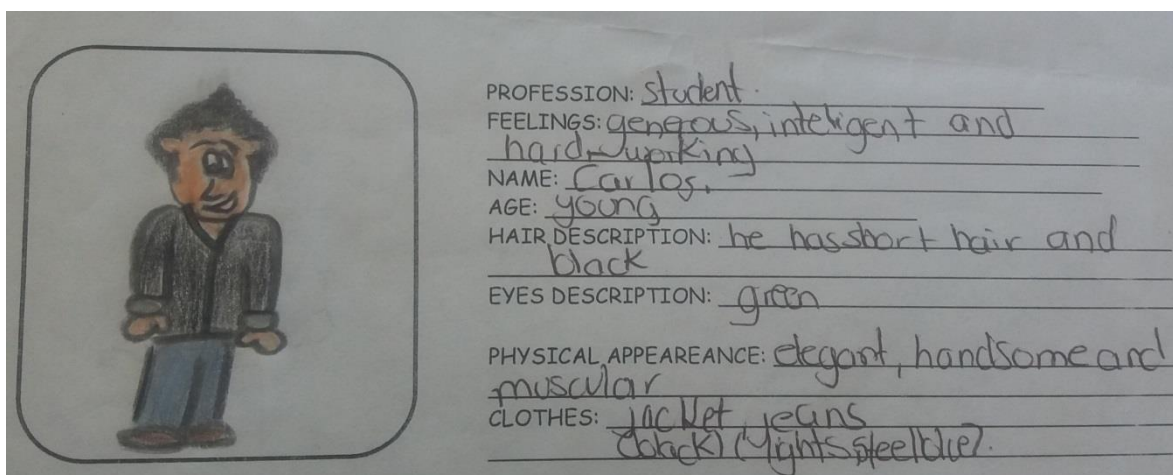 PROFESSION: student.
FEELINGS: generous, inteligent and
hard-working
NAME: Carlos.
AGE: young
HAIR DESCRIPTION: he has short hair and
black
EYES DESCRIPTION: green
PHYSICAL APPEAREANCE: elegant, handsome and
muscular
CLOTHES: jacket, jeans
(black) (lights steelblue).